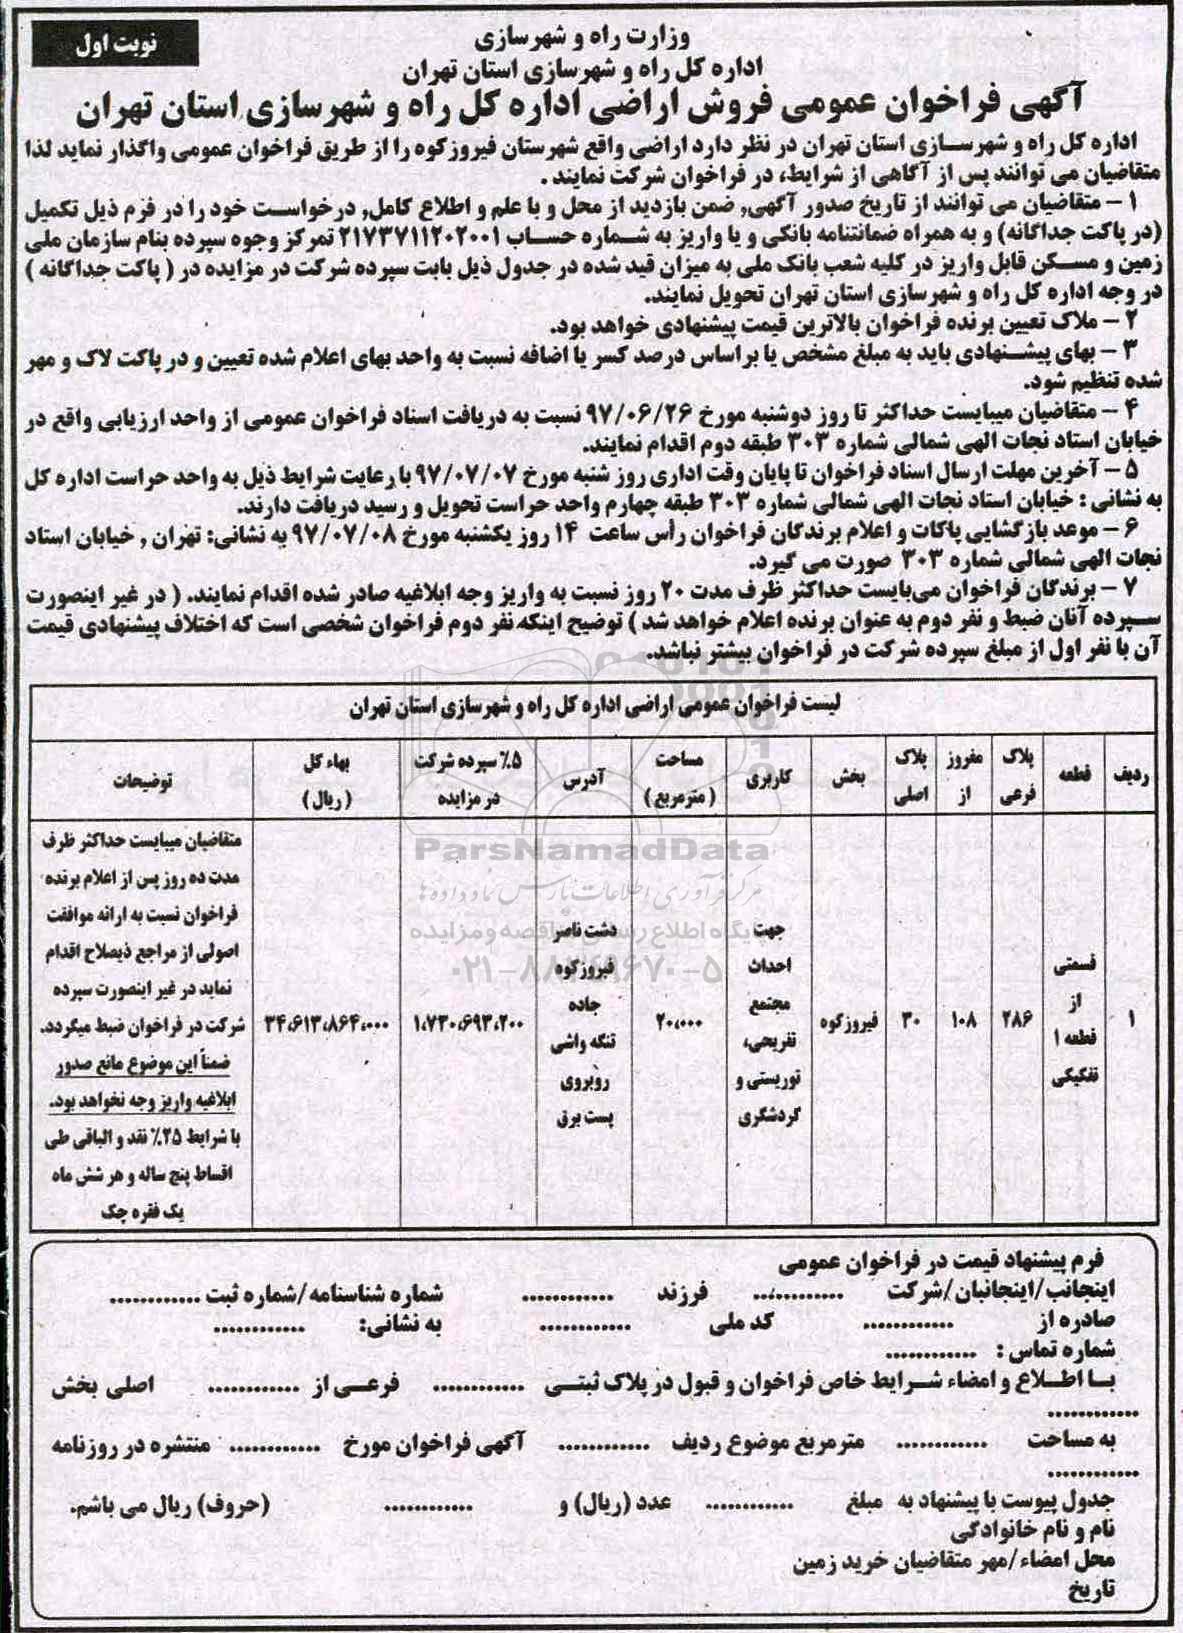 نوبت اول
وزارت راه و شهرسازی
اداره کل راه و شهرسازی استان تهران
آگهی فراخوان عمومی فروش اراضی اداره کل راه و شهرسازی استان تهران
اداره کل راه و شهرسازی استان تهران در نظر دارد اراضی واقع شهرستان فیروزکوه را از طریق فراخوان عمومی واگذار نماید لذا
متقاضیان می توانند پس از آگاهی از شرایط، در فراخوان شرکت نمایند .
۱ - متقاضیان می توانند از تاریخ صدور آگهی, ضمن بازدید از محل و با علم و اطلاع کامل, درخواست خود را در فرم ذیل تکمیل
(در پاکت جداگانه) و به همراه ضمانتنامه بانکی و یا واریز به شماره حساب ۲۱۷۳۷۱۱۲۰۲۰۰۱ تمرکز وجوه سپرده بنام سازمان ملی
زمین و مسکن قابل واریز در کلیه شعب بانک ملی به میزان قید شده در جدول ذیل بابت سپرده شرکت در مزایده در ( پاکت جداگانه )
در وجه اداره کل راه و شهرسازی استان تهران تحویل نمایند.
۲ - ملاک تعیین برنده فراخوان بالاترین قیمت پیشنهادی خواهد بود.
۳ - بهای پیشنهادی باید به مبلغ مشخص یا براساس درصد کسر یا اضافه نسبت به واحد بهای اعلام شده تعیین و در پاکت لاک و مهر
شده تنظیم شود.
۴ - متقاضیان میبایست حداکثر تا روز دوشنبه مورخ ۹۷/۰۶/۲۶ نسبت به دریافت اسناد فراخوان عمومی از واحد ارزیابی واقع در
خیابان استاد نجات الهی شمالی شماره ۳۰۳ طبقه دوم اقدام نمایند.
۵ - آخرین مهلت ارسال اسناد فراخوان تا پایان وقت اداری روز شنبه مورخ ۹۷/۰۷/۰۷ با رعایت شرایط ذیل به واحد حراست اداره کل
به نشانی : خیابان استاد نجات الهی شمالی شماره ۳۰۳ طبقه چهارم واحد حراست تحویل و رسید دریافت دارند.
۶ - موعد بازگشایی پاکات و اعلام برندگان فراخوان رأس ساعت ۱۴ روز یکشنبه مورخ ۹۷/۰۷/۰۸ به نشانی: تهران , خیابان استاد
نجات الهی شمالی شماره ۳۰۳ صورت می گیرد.
۷ - برندگان فراخوان می‌بایست حداکثر ظرف مدت ۲۰ روز نسبت به واریز وجه ابلاغیه صادر شده اقدام نمایند. ( در غیر اینصورت
سپرده آنان ضبط و نفر دوم به عنوان برنده اعلام خواهد شد ) توضیح اینکه نفر دوم فراخوان شخصی است که اختلاف پیشنهادی قیمت
آن با نفر اول از مبلغ سپرده شرکت در فراخوان بیشتر نباشد.
لیست فراخوان عمومی اراضی اداره کل راه و شهرسازی استان تهران
ردیف
قطعه
پلاک
فرعی
مفروز
از
پلاک
اصلی
بخش
کاربری
مساحت
(مترمربع)
آدرس
۵٪ سپرده شرکت
در مزایده
بهاء کل
(ریال)
توضیحات
۱
قسمتی
از
قطعه ۱
تفکیکی
۲۸۶
۱۰۸
۳۰
فیروزکوه
جهت
احداث
مجتمع
تفریحی،
توریستی و
گردشگری
۲۰،۰۰۰
دشت ناصر
فیروزکوه
جاده
تنگه واشی
روبروی
پست برق
۱،۷۳۰،۶۹۳،۲۰۰
۳۴،۶۱۳،۸۶۴،۰۰۰
متقاضیان میبایست حداکثر ظرف
مدت ده روز پس از اعلام برنده
فراخوان نسبت به ارائه موافقت
اصولی از مراجع ذیصلاح اقدام
نماید در غیر اینصورت سپرده
شرکت در فراخوان ضبط میگردد.
ضمناً این موضوع مانع صدور
ابلاغیه واریز وجه نخواهد بود.
با شرایط ۲۵٪ نقد و الباقی طی
اقساط پنج ساله و هر شش ماه
یک فقره چک
ParsNamadData
مرکز فرآوری اطلاعات پارس نماد داده ها
پایگاه اطلاع رسانی مناقصه و مزایده
۰۲۱-۸۸۳۴۹۶۷۰-۵
فرم پیشنهاد قیمت در فراخوان عمومی
اینجانب/اینجانبان/شرکت ............ فرزند ............ شماره شناسنامه/شماره ثبت ............
صادره از ............ کد ملی ............ به نشانی: ............
شماره تماس : ............
با اطلاع و امضاء شرایط خاص فراخوان و قبول در پلاک ثبتی ............ فرعی از ............ اصلی بخش
............
به مساحت ............ مترمربع موضوع ردیف ............ آگهی فراخوان مورخ ............ منتشره در روزنامه
............
جدول پیوست با پیشنهاد به مبلغ ............ عدد (ریال) و ............ (حروف) ریال می باشم.
نام و نام خانوادگی
محل امضاء/مهر متقاضیان خرید زمین
تاریخ